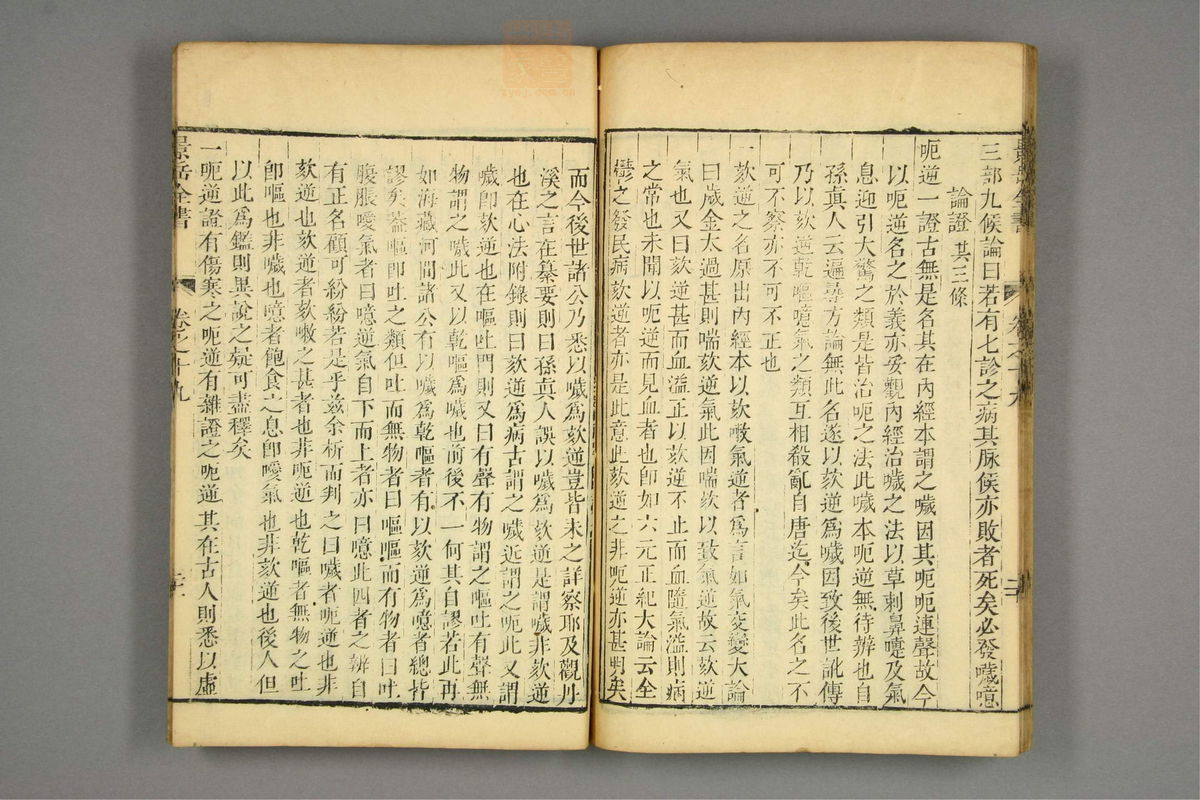 三部九候論曰若有七診之病其脉候亦敗者死矣必發噦噫
論證 共三條
呃逆一證古無是名其在內經本謂之噦因其呃呃連聲故今
以呃逆名之於義亦妥觀內經治噦之法以草刺鼻嚏及氣
息迎引大驚之類是皆治呃之法此噦本呃逆無待辨也自
孫真人云遍尋方論無此名遂以欬逆為噦因致後世訛傳
乃以欬逆乾嘔噫氣之類互相殽亂自唐迄今矣此名之不
可不察亦不可不正也
一欬逆之名原出內經本以欬嗽氣逆者為言如氣交變大論
曰歲金太過甚則喘欬逆氣此因喘欬以致氣逆故云欬逆
氣也又曰欬逆甚而血溢正以欬逆不止而血隨氣溢則病
之常也未聞以呃逆而見血者也卽如六元正紀大論云金
鬱之發民病欬逆者亦是此意此欬逆之非呃逆亦甚明矣
而今後世諸公乃悉以噦為欬逆豈皆未之詳察耶及觀丹
溪之言在纂要則曰孫真人誤以噦為欬逆是謂噦非欬逆
也在心法附錄則曰欬逆為病古謂之噦近謂之呃此又謂
噦卽欬逆也在嘔吐門則又曰有聲有物謂之嘔吐有聲無
物謂之噦此又以乾嘔為噦也前後不一何其自謬若此再
如海藏河間諸公有以噦為乾嘔者有以欬逆為噫者總皆
謬矣蓋嘔卽吐之類但吐而無物者曰嘔嘔而有物者曰吐
腹脹噯氣者曰噫逆氣自下而上者亦曰噫此四者之辨自
有正名顧可紛紛若是乎茲余析而判之曰噦者呃逆也非
欬逆也欬逆者欬嗽之甚者也非呃逆也乾嘔者無物之吐
卽嘔也非噦也噫者飽食之息卽噯氣也非欬逆也後人但
以此為鑑則異說之疑可盡釋矣
一呃逆證有傷寒之呃逆有雜證之呃逆其在古人則悉以虛
景岳全書 卷之十九